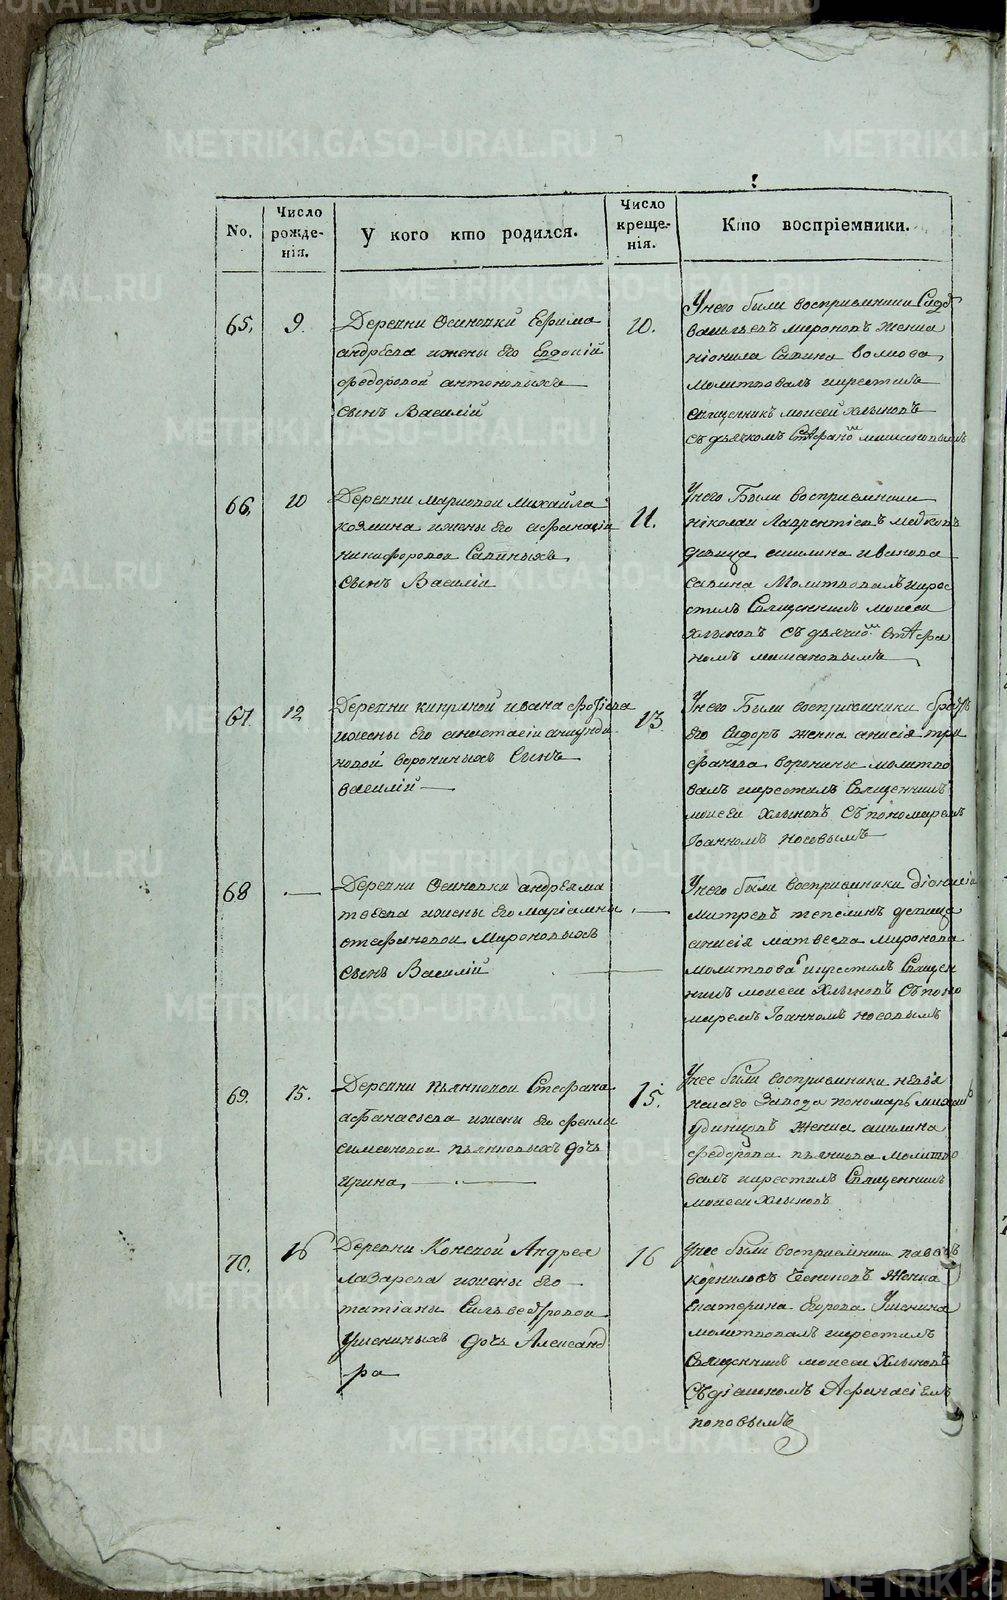 METRIKI.GASO-URAL.RU
No.
Число рожде-нія.
У кого кто родился.
Число креще-нія.
Кто воспріемники.
65.
9
Деревни Осиновки Ефима
андрѣева ижены его Евдокіи
федоровой антоновыхъ
сынъ Василій
10.
Унего были восприемники
миронов женка
молитвовалъ икрестилъ
священникъ моисей хлыновъ
съ дьячкомъ
66.
10
Деревни Михаила
козмина ижены его афанасіи
никифоровой Савиныхъ
сынъ Василіи
11.
Унего Были восприемники
николаи Лаврентіевъ
девица акилина иванова
савина Молитвовалъ икрес
тилъ Священникъ моисеи
хлыновъ съ дьячко
номъ
67.
12
Деревни киприной ивана
ижены его анастасіи
новой воронины сынъ
василій
13
Унего Были восприемники братъ
его Сидоръ женка анисія три
фанова воронины молитво
валъ икрестилъ Священникъ
моисеи Хлыновъ съ пономаремъ
Іоанномъ Носовымъ
68
Деревни Осиновки андрея ма
твеева ижены его маріамны
стефановои Мироновыхъ
сынъ Василій
Унего были восприемники
митревъ девица
анисія матвеева миронова
молитвова икрестилъ Священ
никъ моисеи Хлыновъ съ поно
маремъ Іоанномъ носовымъ
69.
15.
Деревни пьянковои Стефана
афанасьева ижены его феклы
симеоновои пьянковыхъ дочь
ирина,
15.
Унее были восприемники
завода пономарь
удинцовъ женка акилина
федорова пьянкова молитво
валъ икрестилъ Священникъ
моисеи Хлыновъ
70.
16
Деревни Коневой Андрея
лазарева ижены его
татіаны Сильвестровои
дочь Александ
ра
16
Унее были восприемники
корниловъ женка
екатерина Егорова
молитвовалъ икрестилъ
Священникъ моисеи Хлыновъ
съ Афанасіемъ
поповымъ